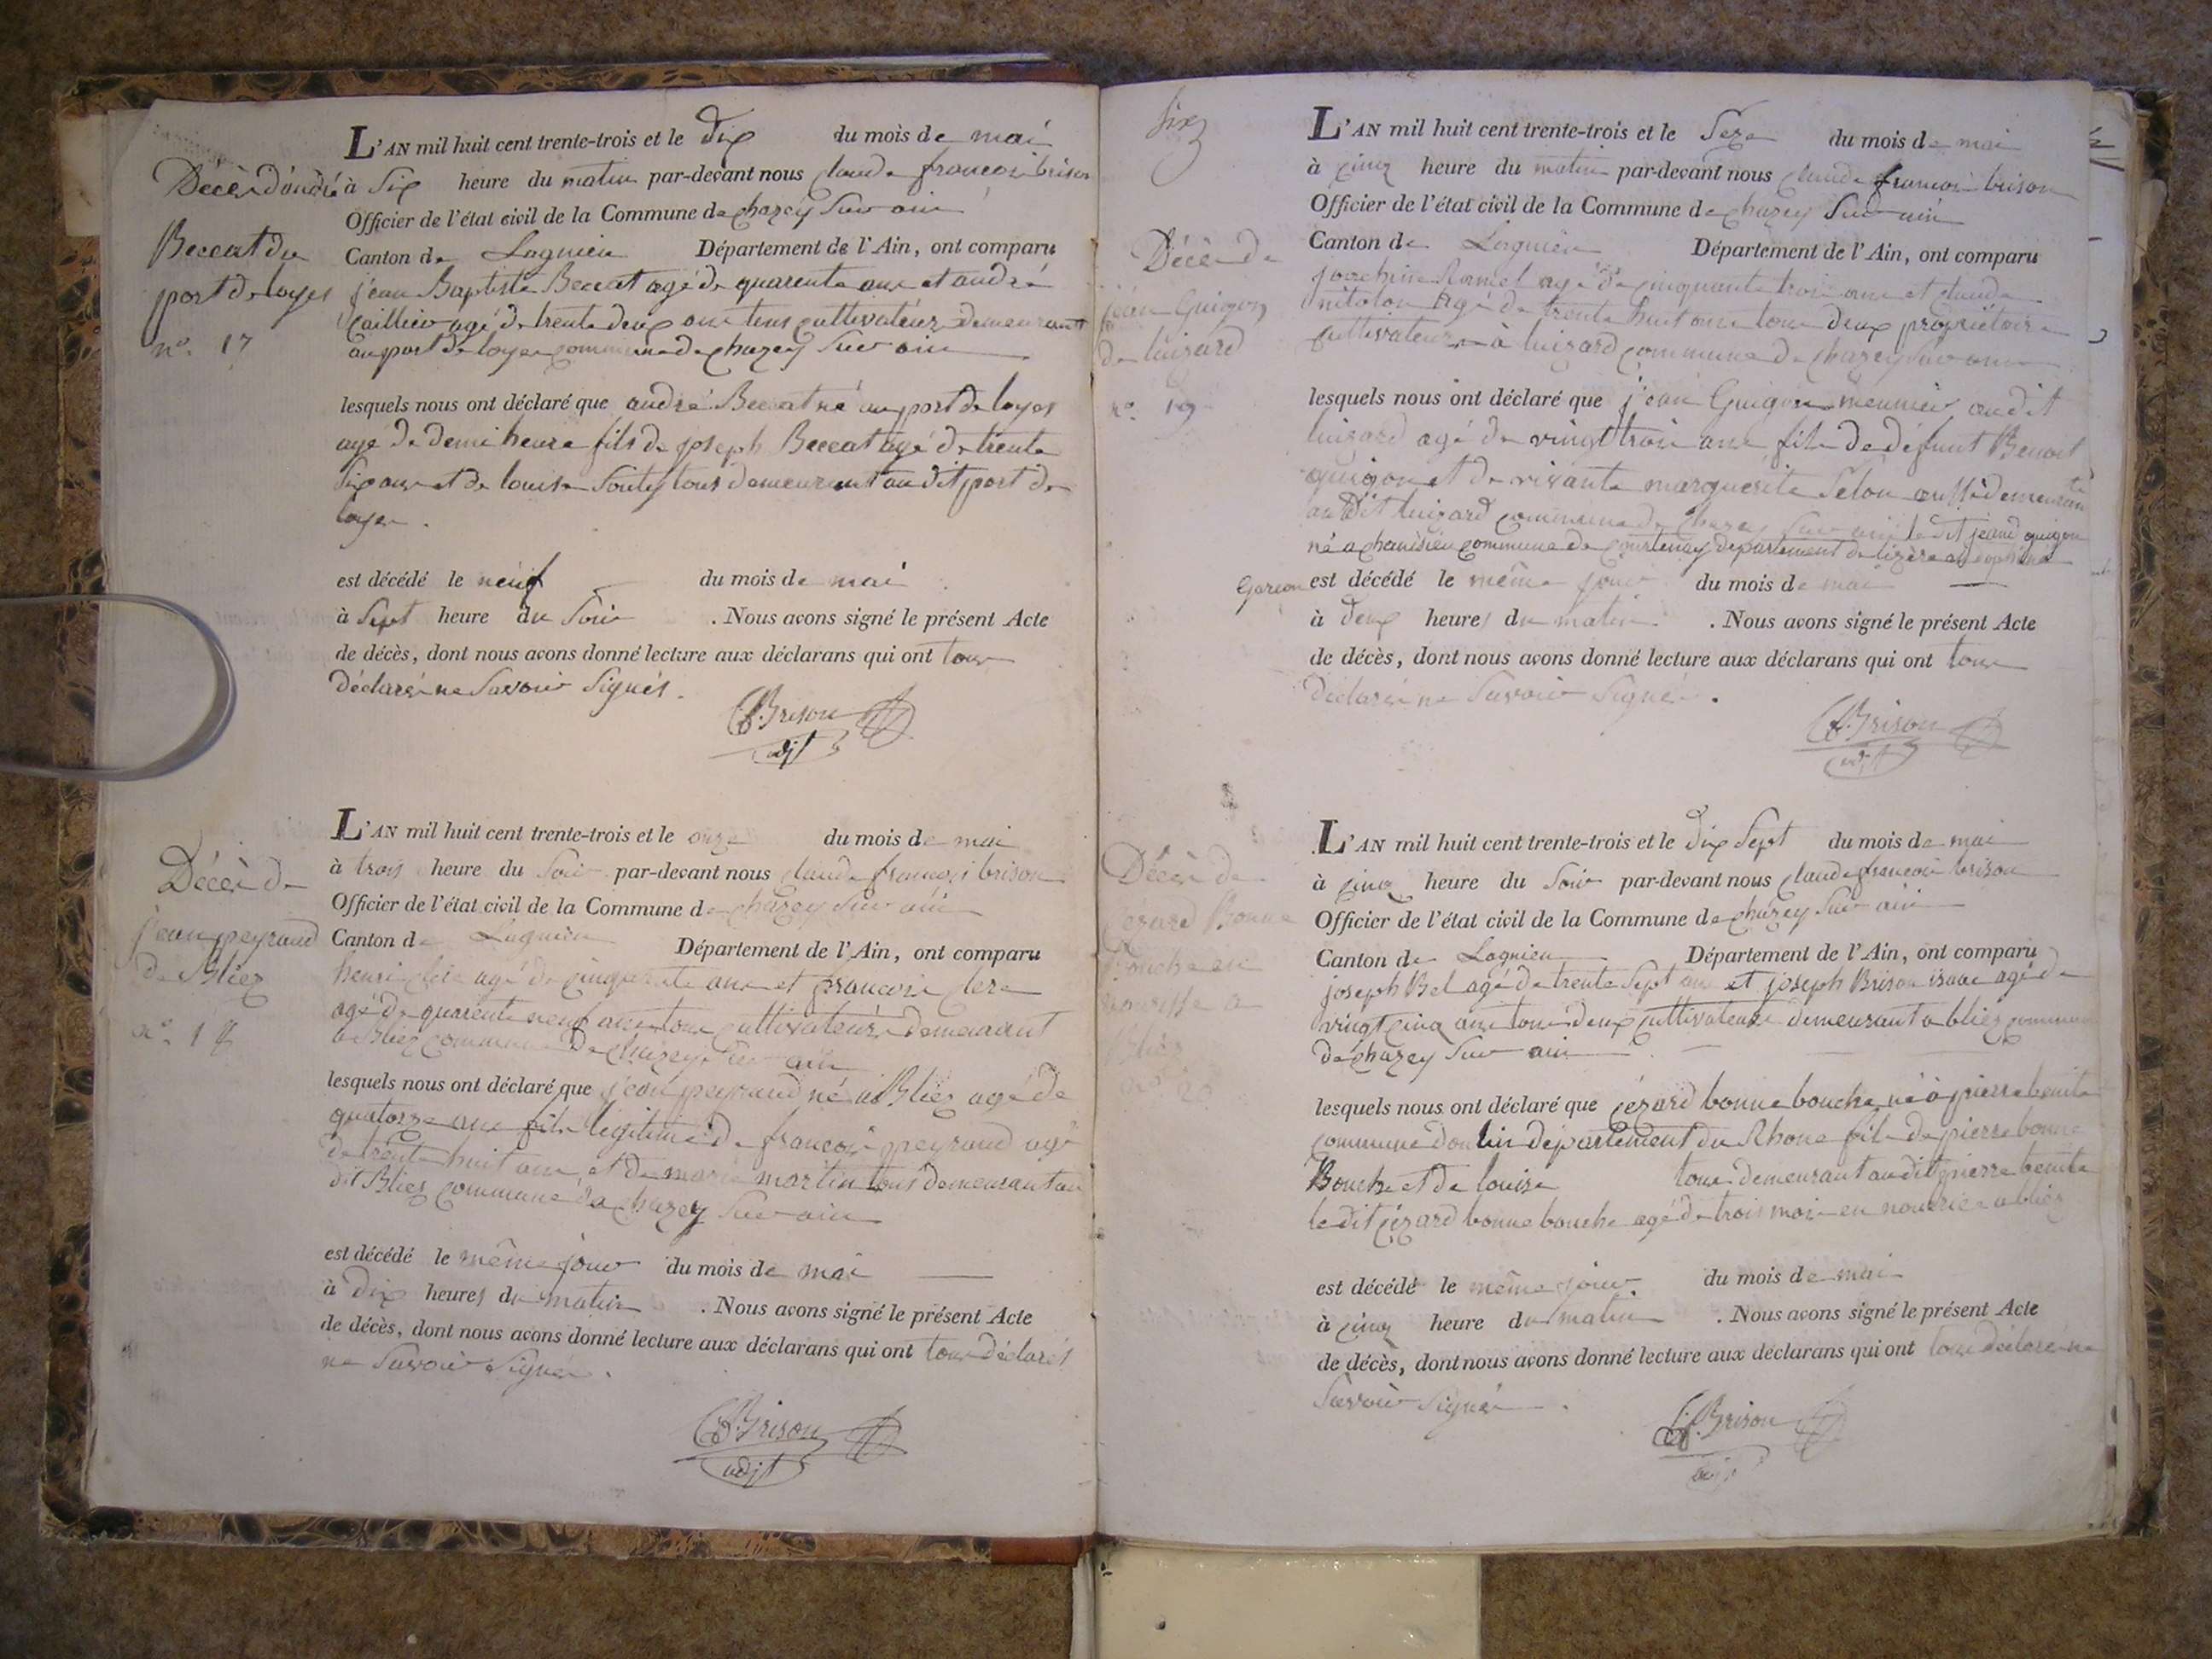 Décès d'andré
Beccat du
port de loyes
n°. 17
L'AN mil huit cent trente-trois et le dix du mois de mai
à six heure du matin par-devant nous claude francois brison
Officier de l'état civil de la Commune de chazey sur ain
Canton de Lagnieu Département de l'Ain, ont comparu
jean Baptiste Beccat agé de quarente ans et andré
caillier agé de trente deux ans tous cultivateurs demeurant
au port de loyes commune de chazey sur ain
lesquels nous ont déclaré que andré Beccat né au port de loyes
agé de demi heure fils de joseph Beccat agé de trente
six ans et de louise tous demeurant au dit port de
loyes.
est décédé le neuf du mois de mai
à sept heure du soir . Nous avons signé le présent Acte
de décès, dont nous avons donné lecture aux déclarans qui ont tous
déclarés ne savoir signés.
Brison
adjt
Décès de
jean peyraud
de Bliez
n°. 18
L'AN mil huit cent trente-trois et le onze du mois de mai
à trois heure du soir par-devant nous claude francois brison
Officier de l'état civil de la Commune de chazey sur ain
Canton de Lagnieu Département de l'Ain, ont comparu
henri clere agé de cinquante ans et francois clere
agé de quarente neuf ans tous cultivateurs demeurant
a Bliez commune de chazey sur ain
lesquels nous ont déclaré que jean peyraud né à Bliez agé de
quatorze ans fils legitime de francois peyraud agé
de trente huit ans et de marie martin tous demeurant au
dit Bliez commune de chazey sur ain
est décédé le même jour du mois de mai
à dix heures du matin . Nous avons signé le présent Acte
de décès, dont nous avons donné lecture aux déclarans qui ont tous déclarés
ne savoir signer.
Brison
adjt
six
Décès de
jean Guigon
de luizard
n°. 19
L'AN mil huit cent trente-trois et le seze du mois de mai
à cinq heure du matin par-devant nous claude francois brison
Officier de l'état civil de la Commune de chazey sur ain
Canton de Lagnieu Département de l'Ain, ont comparu
joachin Ramel agé de cinquante trois ans et claude
agé de trente huit ans tous deux propriétaire
cultivateurs à luizard commune de chazey sur ain
lesquels nous ont déclaré que jean Guigon meunier au dit
luizard agé de vingt trois ans fils de défunt Benoit
guigon et de vivante marguerite aussi demeurante
au dit luizard commune de chazey sur ain le dit jean guigon
né a commune de courtenay departement de lizère
Garcon est décédé le même jour du mois de mai
à deux heures du matin . Nous avons signé le présent Acte
de décès, dont nous avons donné lecture aux déclarans qui ont tous
déclarés ne savoir signé.
Brison
adjt
Décès de
cézard Bonne
Bouche en
nourisse a
Bliez
n° 20
L'AN mil huit cent trente-trois et le dix sept du mois de mai
à cinq heure du soir par-devant nous claude francois brison
Officier de l'état civil de la Commune de chazey sur ain
Canton de Lagnieu Département de l'Ain, ont comparu
joseph Bel agé de trente sept ans et joseph Brison isaac agé de
vingt cinq ans tous deux cultivateurs demeurant a bliez commune
de chazey sur ain
lesquels nous ont déclaré que cézard bonne bouche né à pierre benite
commune doulin département du Rhone fils de pierre bonne
Bouche et de louise tous demeurant au dit pierre benite
le dit cézard bonne bouche agé de trois mois en nourrice a bliez
est décédé le même jour du mois de mai
à cinq heure du matin . Nous avons signé le présent Acte
de décès, dont nous avons donné lecture aux déclarans qui ont tous déclaré ne
savoir signé.
Brison
adjt